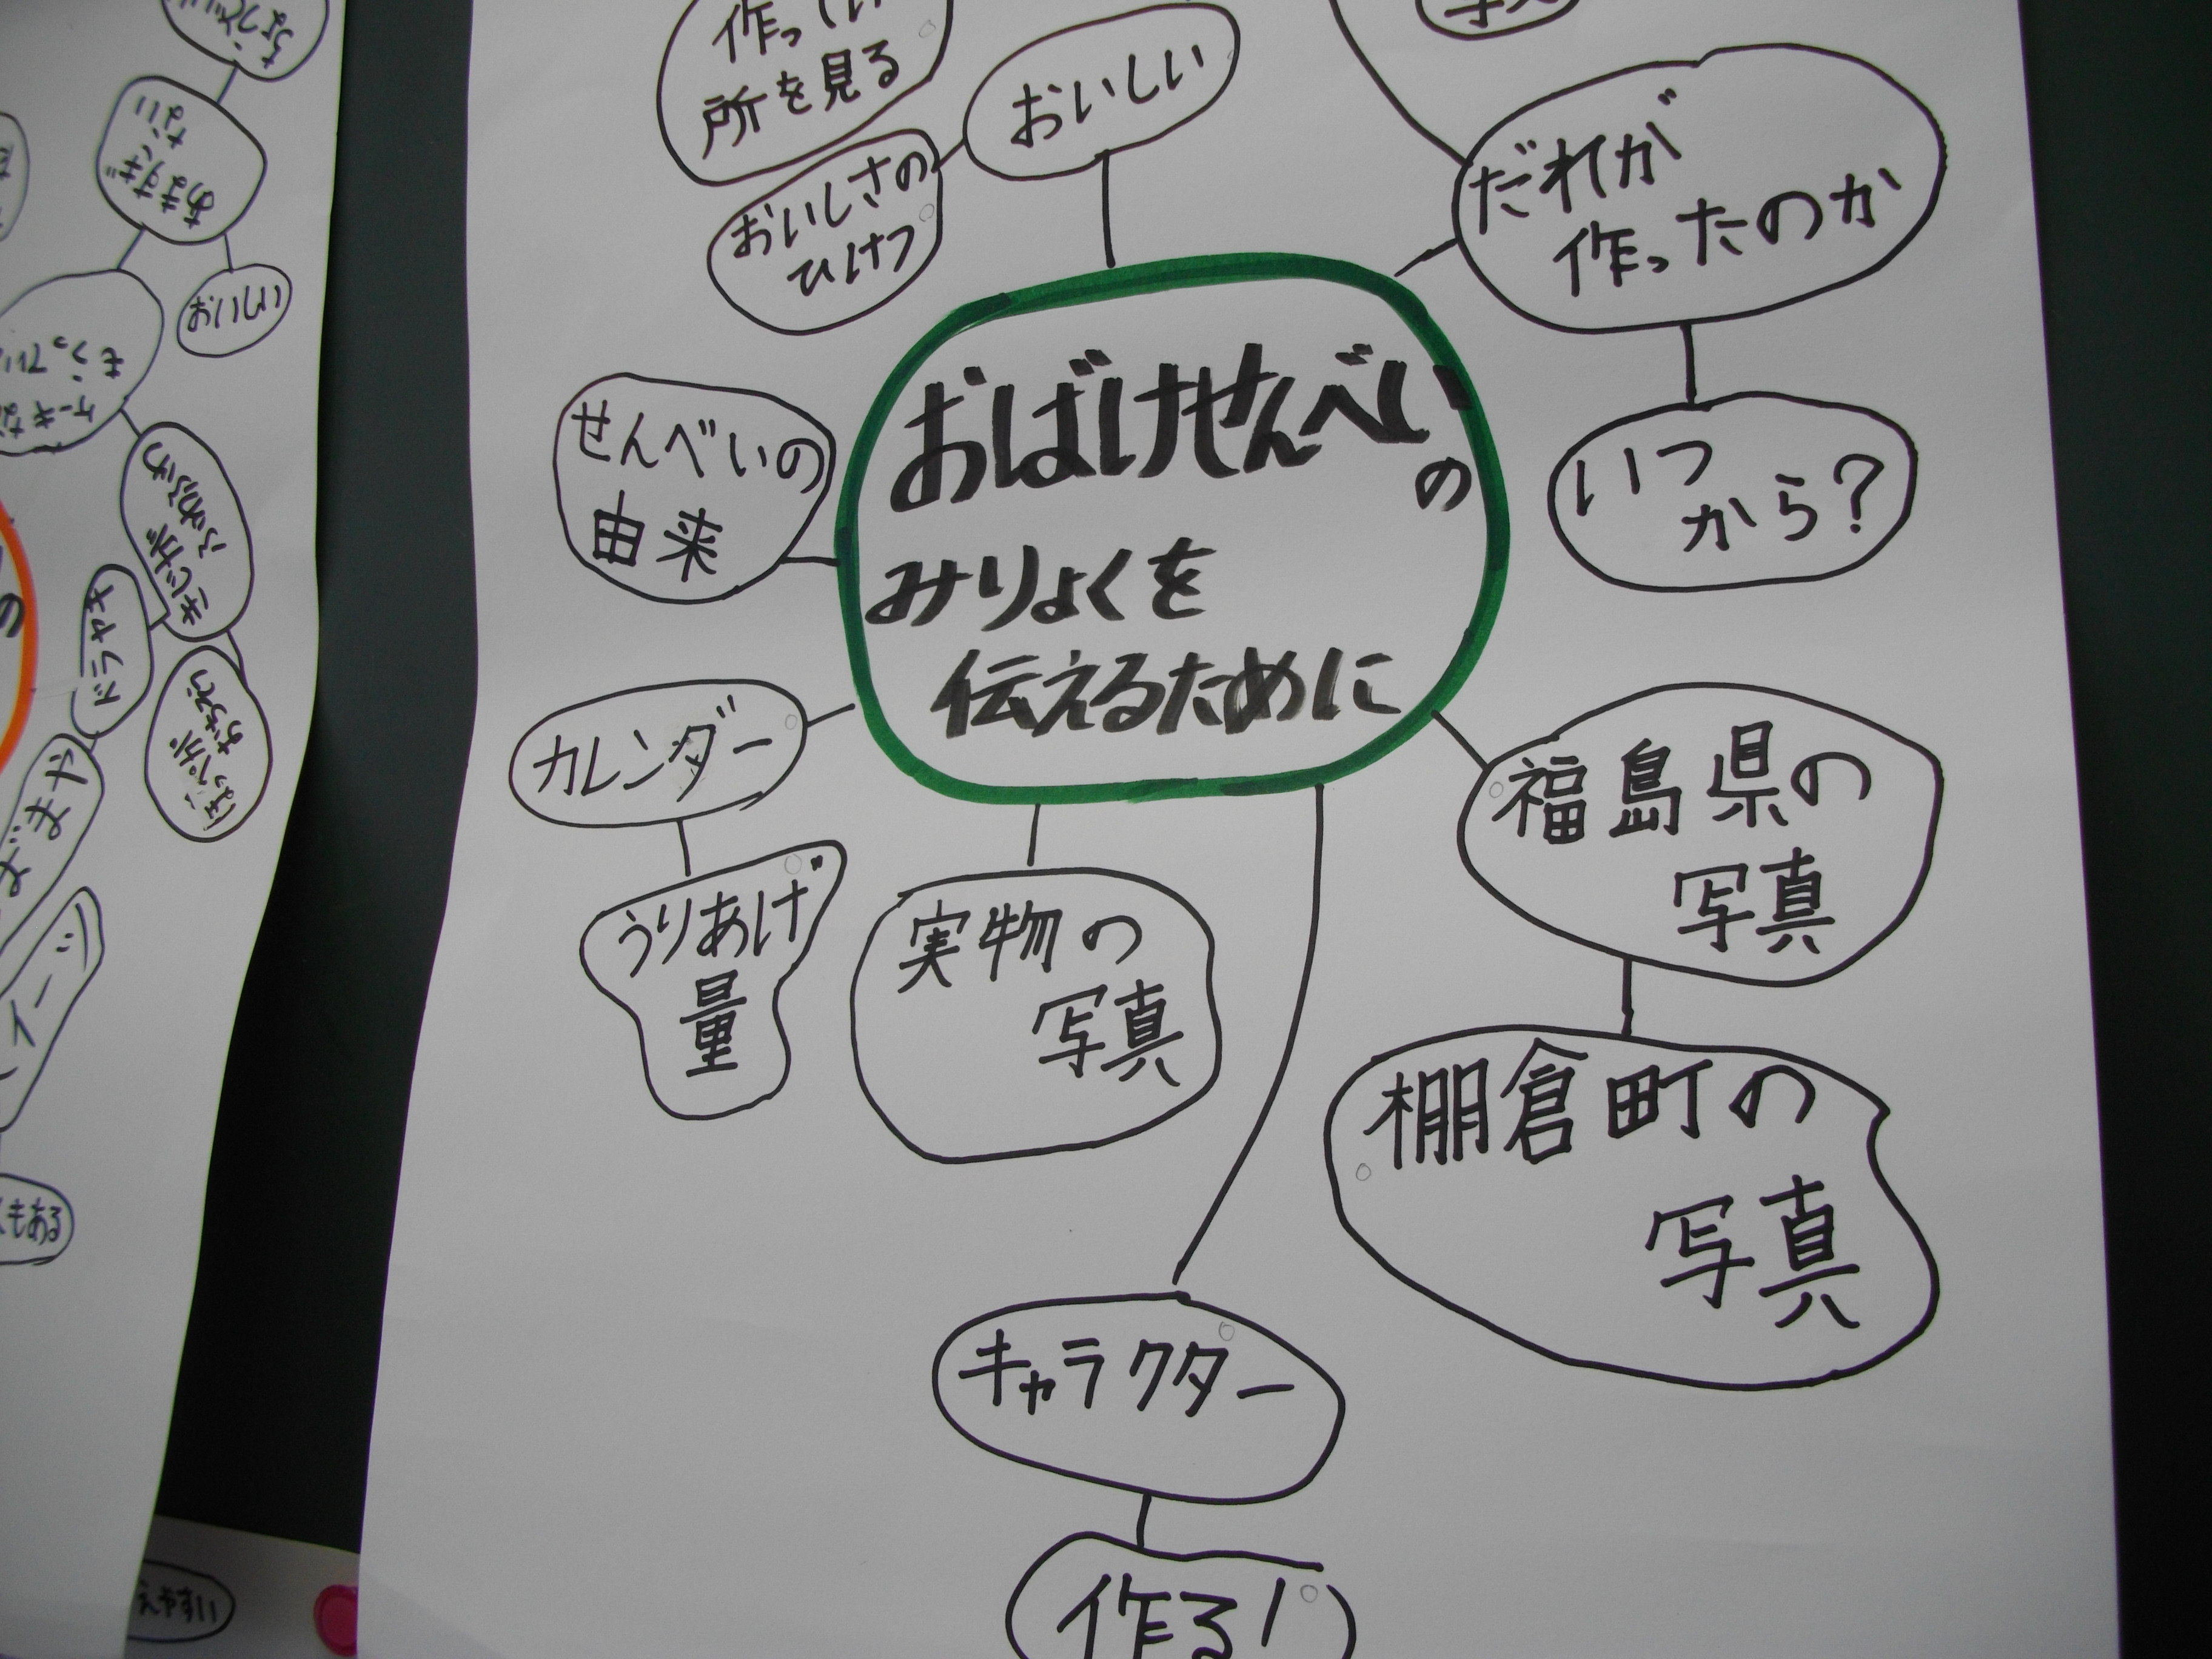 所を見る
おいしい
おいしさの
ひけつ
だれが
作ったのか
いつ
から?
おばけせんべい
の
みりょくを
伝えるために
せんべいの
由来
カレンダー
うりあげ
量
実物の
写真
福島県の
写真
棚倉町の
写真
キャラクター
作る!
あますぎ
ない
おいしい
きじが
ふわふわ
ドラヤキ
もある
えやすい